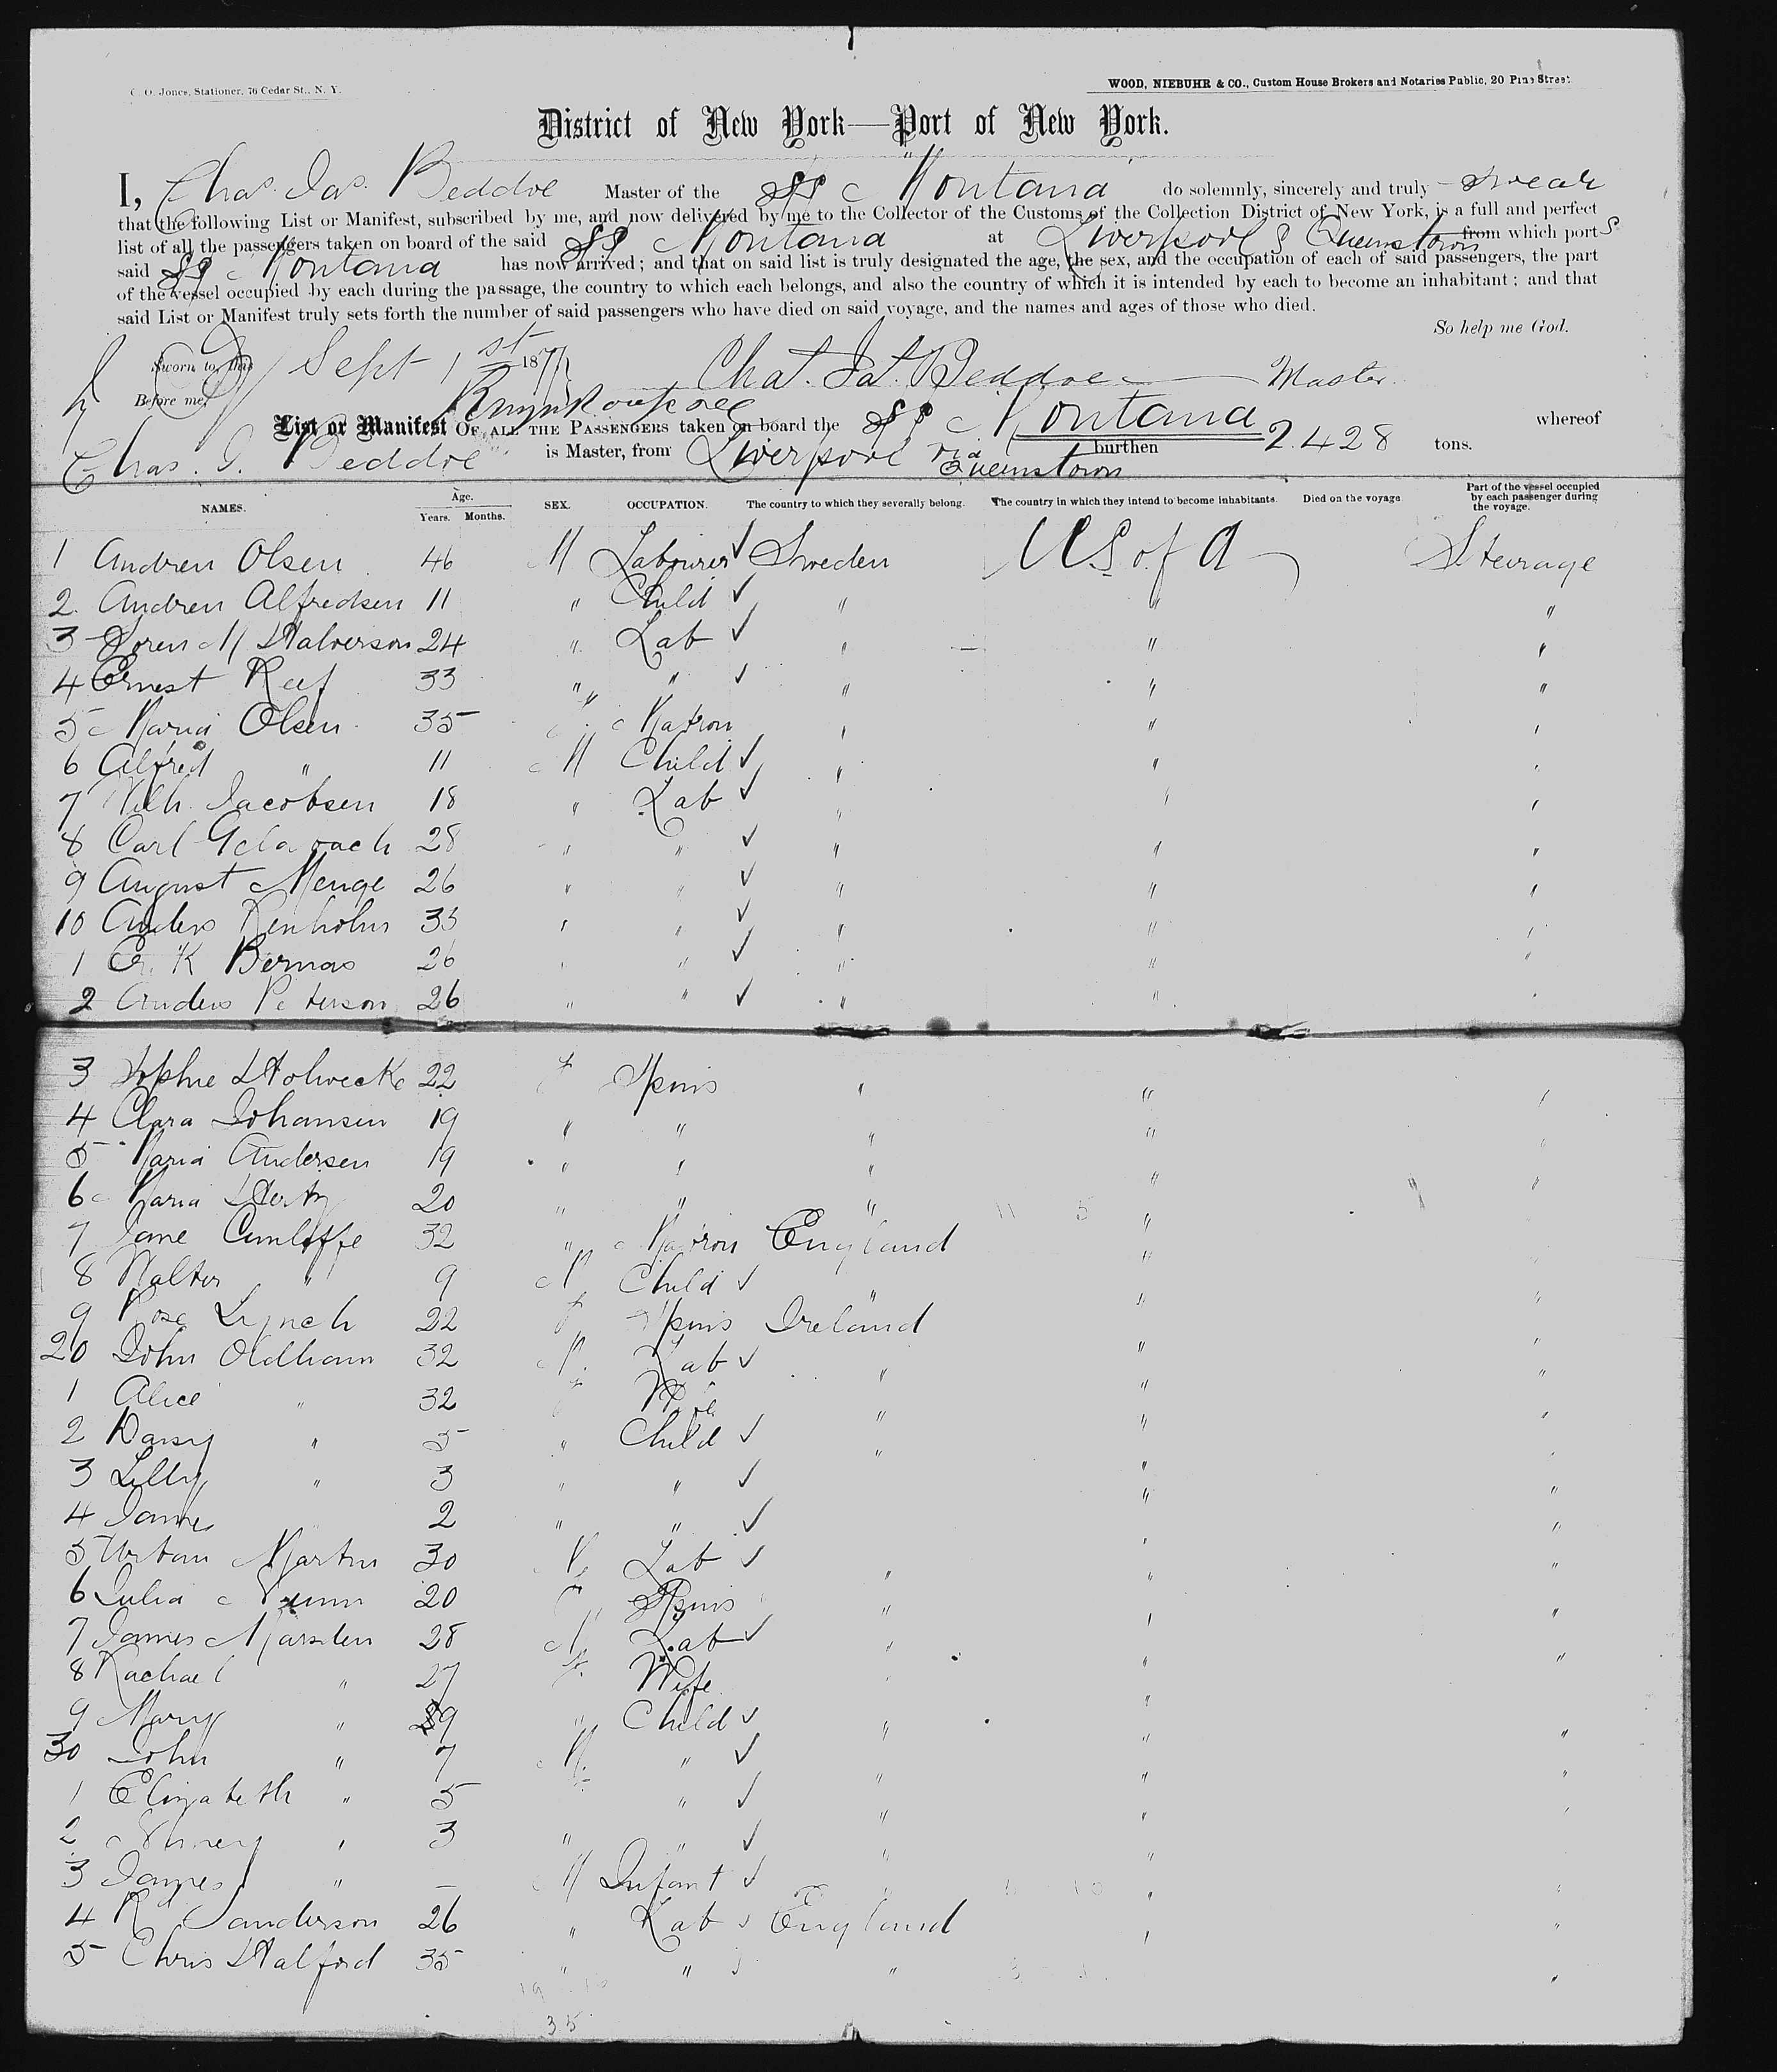 C. O. Jones, Stationer, 76 Cedar St., N. Y.
WOOD, NIEBUHR & CO., Custom House Brokers and Notaries Public, 20 Pine Street.
District of New York—Port of New York.
I, Chas. Jas. Beddoe Master of the SS Montana do solemnly, sincerely and truly swear
that the following List or Manifest, subscribed by me, and now delivered by me to the Collector of the Customs of the Collection District of New York, is a full and perfect
list of all the passengers taken on board of the said SS Montana at Liverpool & Queenstown from which ports
said SS Montana has now arrived; and that on said list is truly designated the age, the sex, and the occupation of each of said passengers, the part
of the vessel occupied by each during the passage, the country to which each belongs, and also the country of which it is intended by each to become an inhabitant; and that
said List or Manifest truly sets forth the number of said passengers who have died on said voyage, and the names and ages of those who died.
So help me God.
Sworn to this Sept 1st 187
Chas. Jas. Beddoe Master
Before me,
List or Manifest OF ALL THE PASSENGERS taken on board the SS Montana whereof
Chas. J. Beddoe is Master, from Liverpool via Queenstown burthen 2.428 tons.
NAMES. Age. Years. Months. SEX. OCCUPATION. The country to which they severally belong. The country in which they intend to become inhabitants. Died on the voyage. Part of the vessel occupied by each passenger during the voyage.
1 Andren Olsen 46 M Labourer ✓ Sweden US of A Steerage
2 Andren Alfredsen 11 " Child ✓ " " "
3 Soren M Halverson 24 " Lab ✓ " " "
4 Ernest Reef 33 " " ✓ " " "
5 Maria Olsen 35 Matron " " "
6 Alfred " 11 M Child ✓ " " "
7 Wilh. Jacobsen 18 " Lab ✓ " " "
8 Carl 28 " " ✓ " " "
9 August Menge 26 " " ✓ " " "
10 Anders Renholm 33 " " ✓ " " "
1 K Bernas 26 " " ✓ " " "
2 Anders Peterson 26 " " ✓ " " "
3 Sophie Holwecke 22 f Spins " " "
4 Clara Johansen 19 " " " " "
5 Maria Andersen 19 " " " " "
6 Maria 20 " " " " "
7 Jane Cunliffe 32 " Matron England "
8 Walter " 9 M Child ✓ " " "
9 Rose Lynch 22 f Spins Ireland " "
20 John Oldham 32 M Lab ✓ " " "
1 Alice " 32 f Wife " " "
2 Daisy " 5 " Child ✓ " " "
3 Lilly " 3 " " ✓ " "
4 James 2 " " ✓ " "
5 Urban Martin 30 M Lab ✓ " " "
6 Julia Nunn 20 f Spins " " "
7 James Marsden 28 M Lab ✓ " " "
8 Rachael " 27 f Wife " "
9 Mary " 9 " Child ✓ " " "
30 John " 7 M " ✓ " " "
1 Elizabeth " 5 f " ✓ " " "
2 " 3 " " ✓ " "
3 James " – M Infant ✓ " " "
4 Rd Sanderson 26 " Lab ✓ England " "
5 Chris Halford 35 " " ✓ " "
35